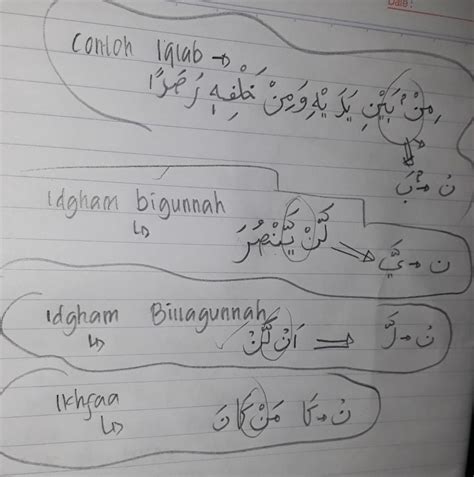 Date:
Contoh Iqlab →
مِنْۢ بَيْنِ يَدَيْهِ وَمِنْ خَلْفِهٖ رَصَدًا
نْ → بَ
Idgham bigunnah
لَّنْ يَّنْصُرَ
ن → يَّ
Idgham Billagunnah
اَنْ لَّنْ
نْ → لَّ
Ikhfaa
مَنْ كَانَ
نْ → كَا